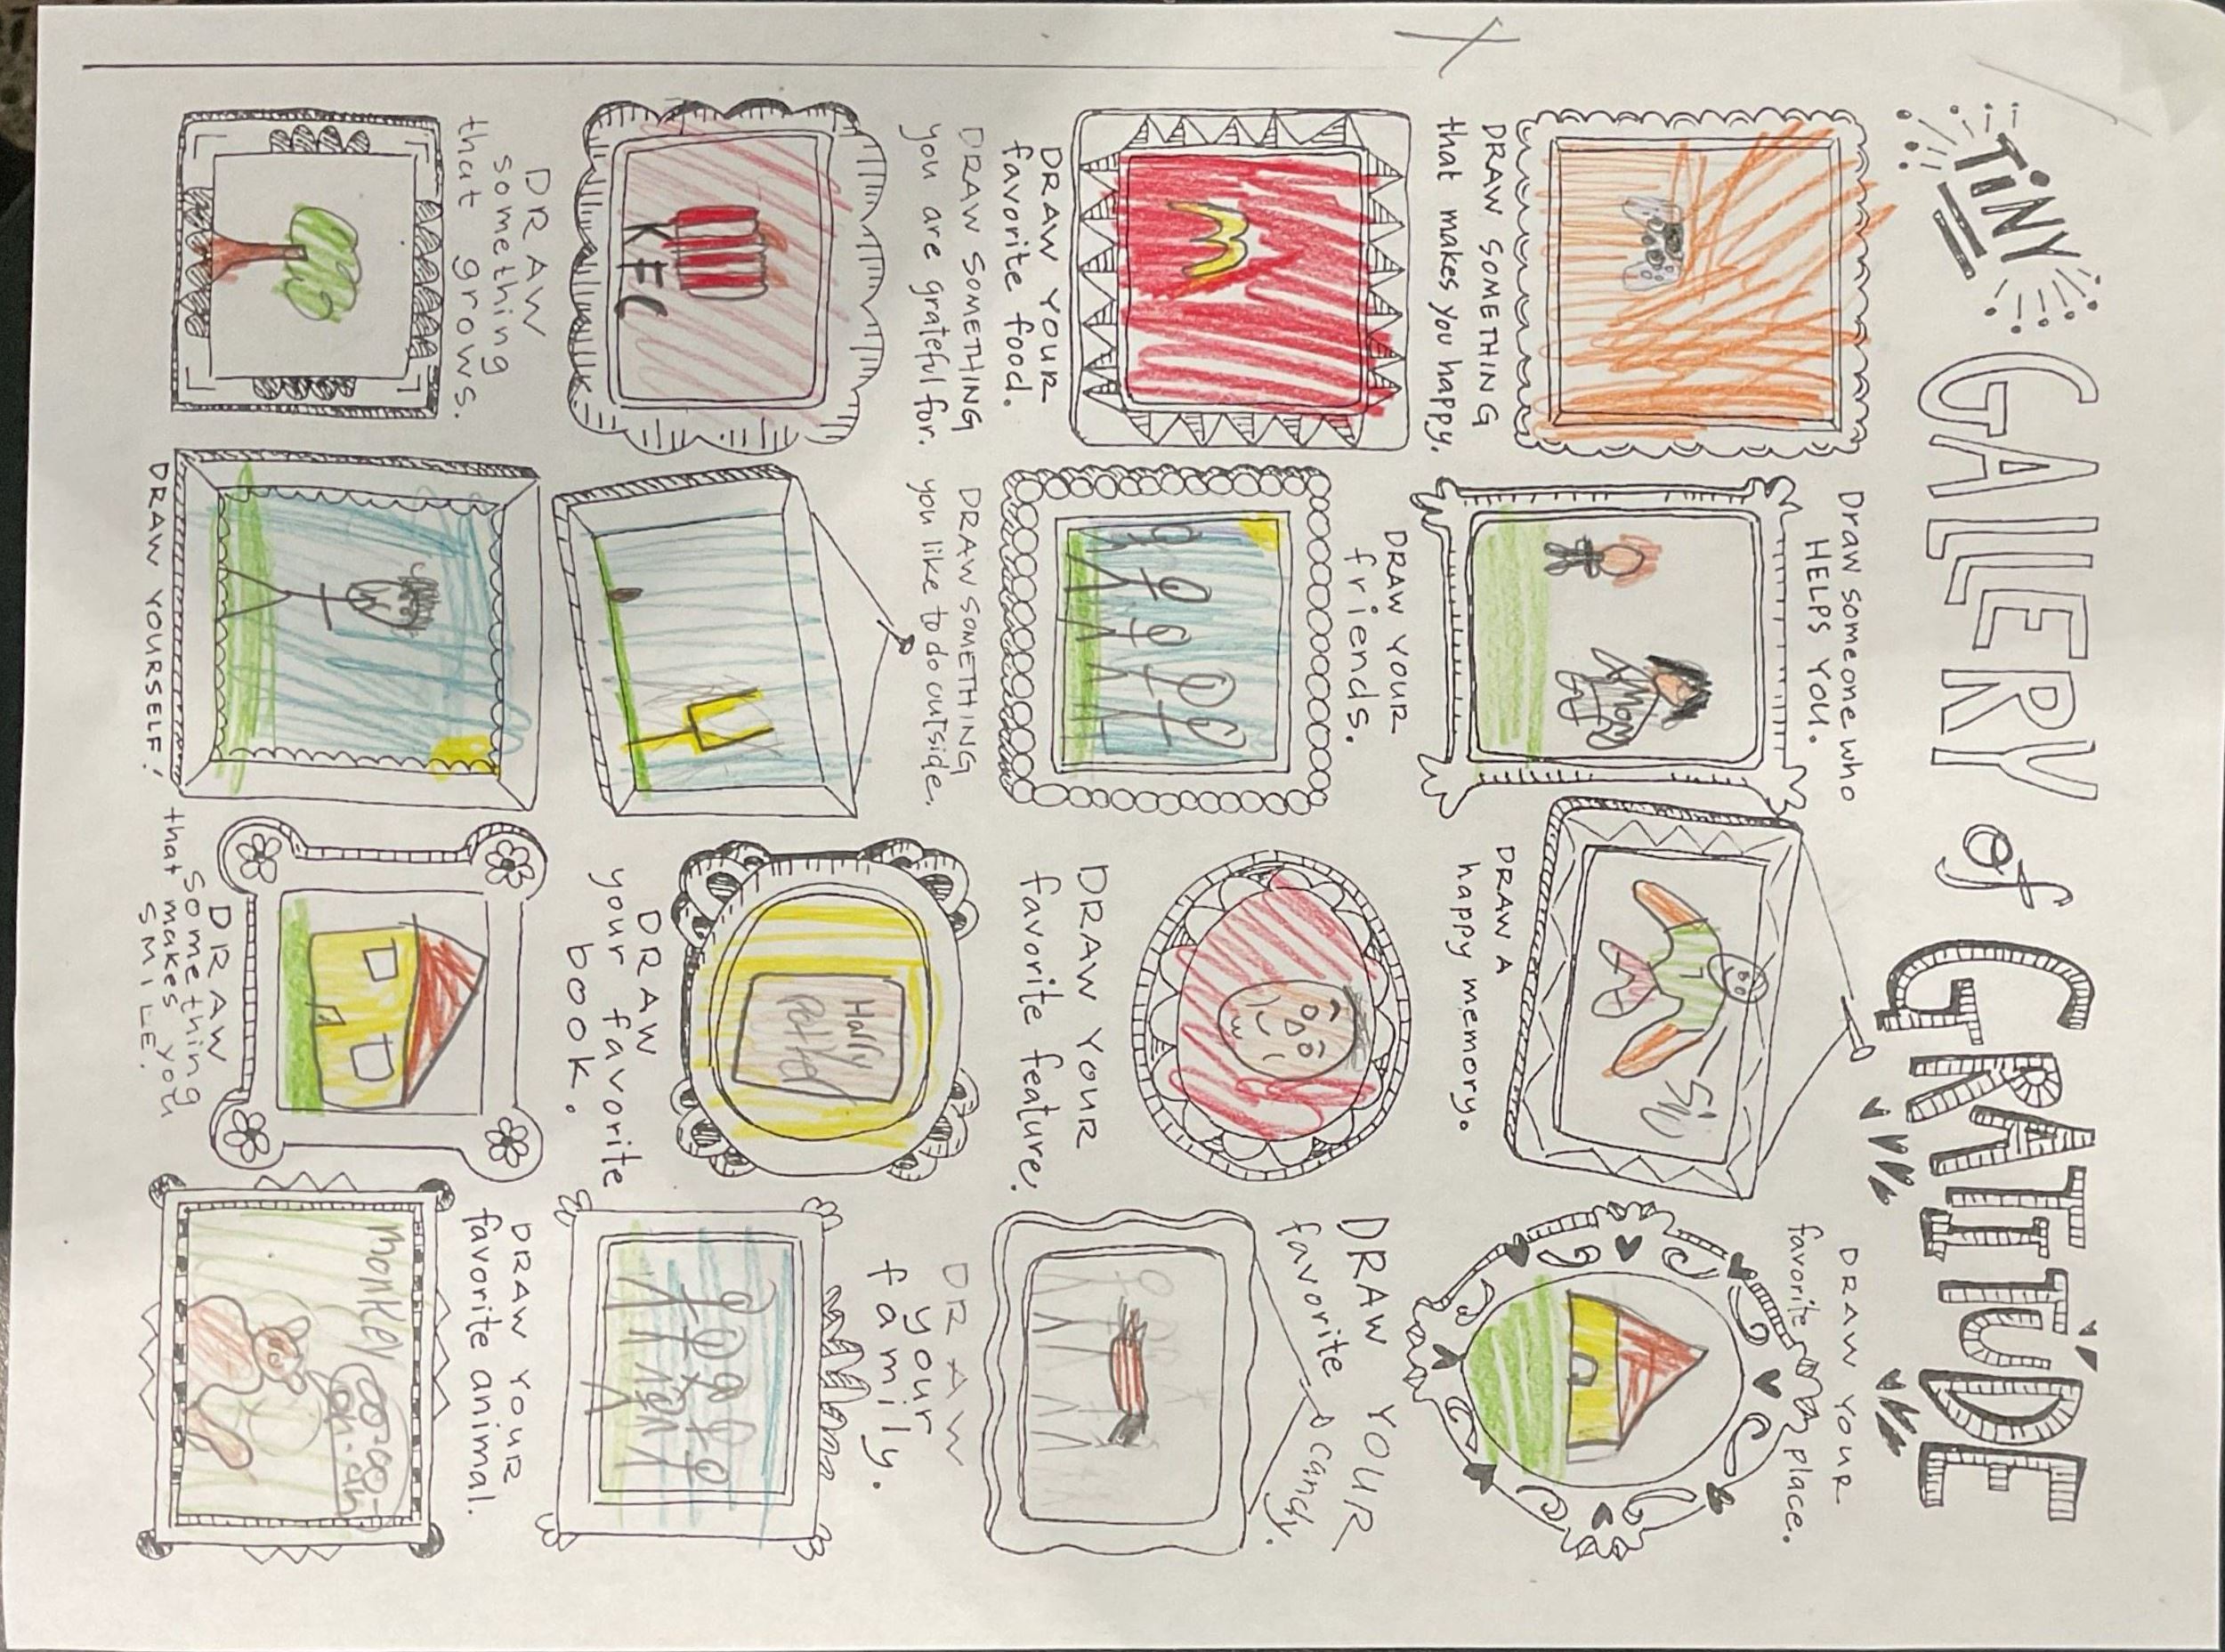 TINY GALLERY of GRATITUDE
DRAW SOMETHING
that makes you happy.
Draw someone who
HELPS YOU.
MOM
DRAW A
happy memory.
DRAW YOUR
favorite place.
DRAW YOUR
favorite food.
DRAW YOUR
friends.
DRAW YOUR
favorite feature.
DRAW YOUR
favorite candy.
DRAW SOMETHING
you are grateful for.
KFC
DRAW SOMETHING
you like to do outside.
Harry
Potter
DRAW
your favorite
book.
DRAW
your
family.
DRAW
something
that grows.
DRAW YOURSELF!
DRAW
something
that makes you
SMILE.
DRAW YOUR
favorite animal.
Monkey
oo-oo-
ah-ah